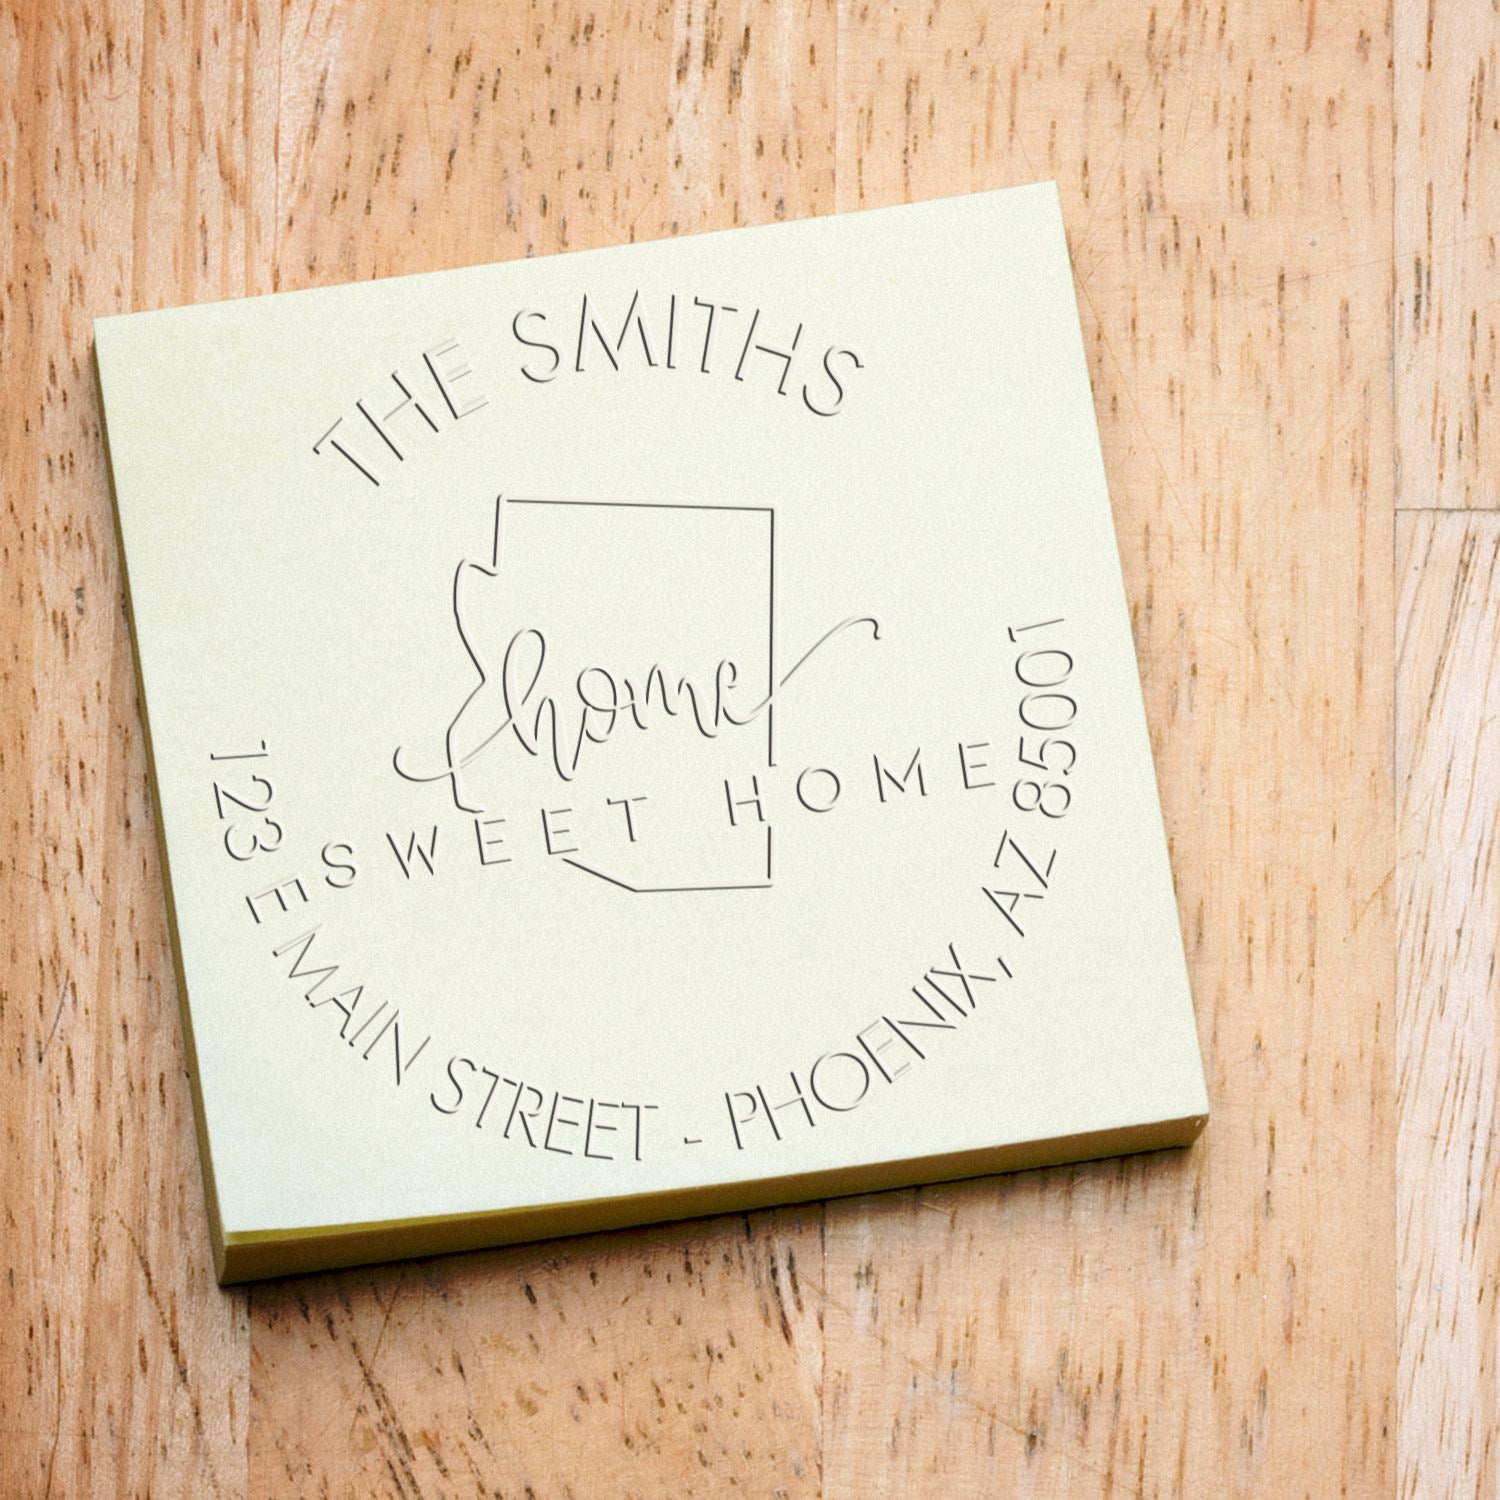 THE SMITHS
home
SWEET HOME
123 E MAIN STREET - PHOENIX, AZ 85001